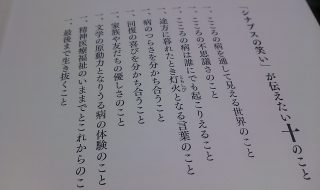 「シナプスの笑い」が伝えたい十のこと
一、こころの病を通して見える世界のこと
一、こころの不思議さのこと
一、こころの病は誰にでも起こりえること
一、途方に暮れたとき灯火となる言葉のこと
一、病のつらさを分かち合うこと
一、回復の喜びを分かち合うこと
一、家族や友だちの優しさのこと
一、文学の原動力となりうる病の体験のこと
一、精神医療福祉のいままでとこれからのこ
一、最後まで生き抜くこと